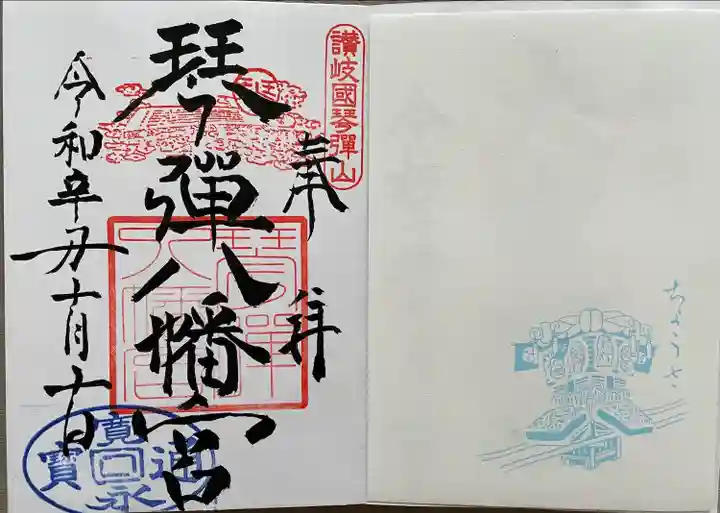 讃岐國琴彈山
奉拝
琴彈八幡宮
令和辛丑十月十日
寛永通寳
ちょうさ